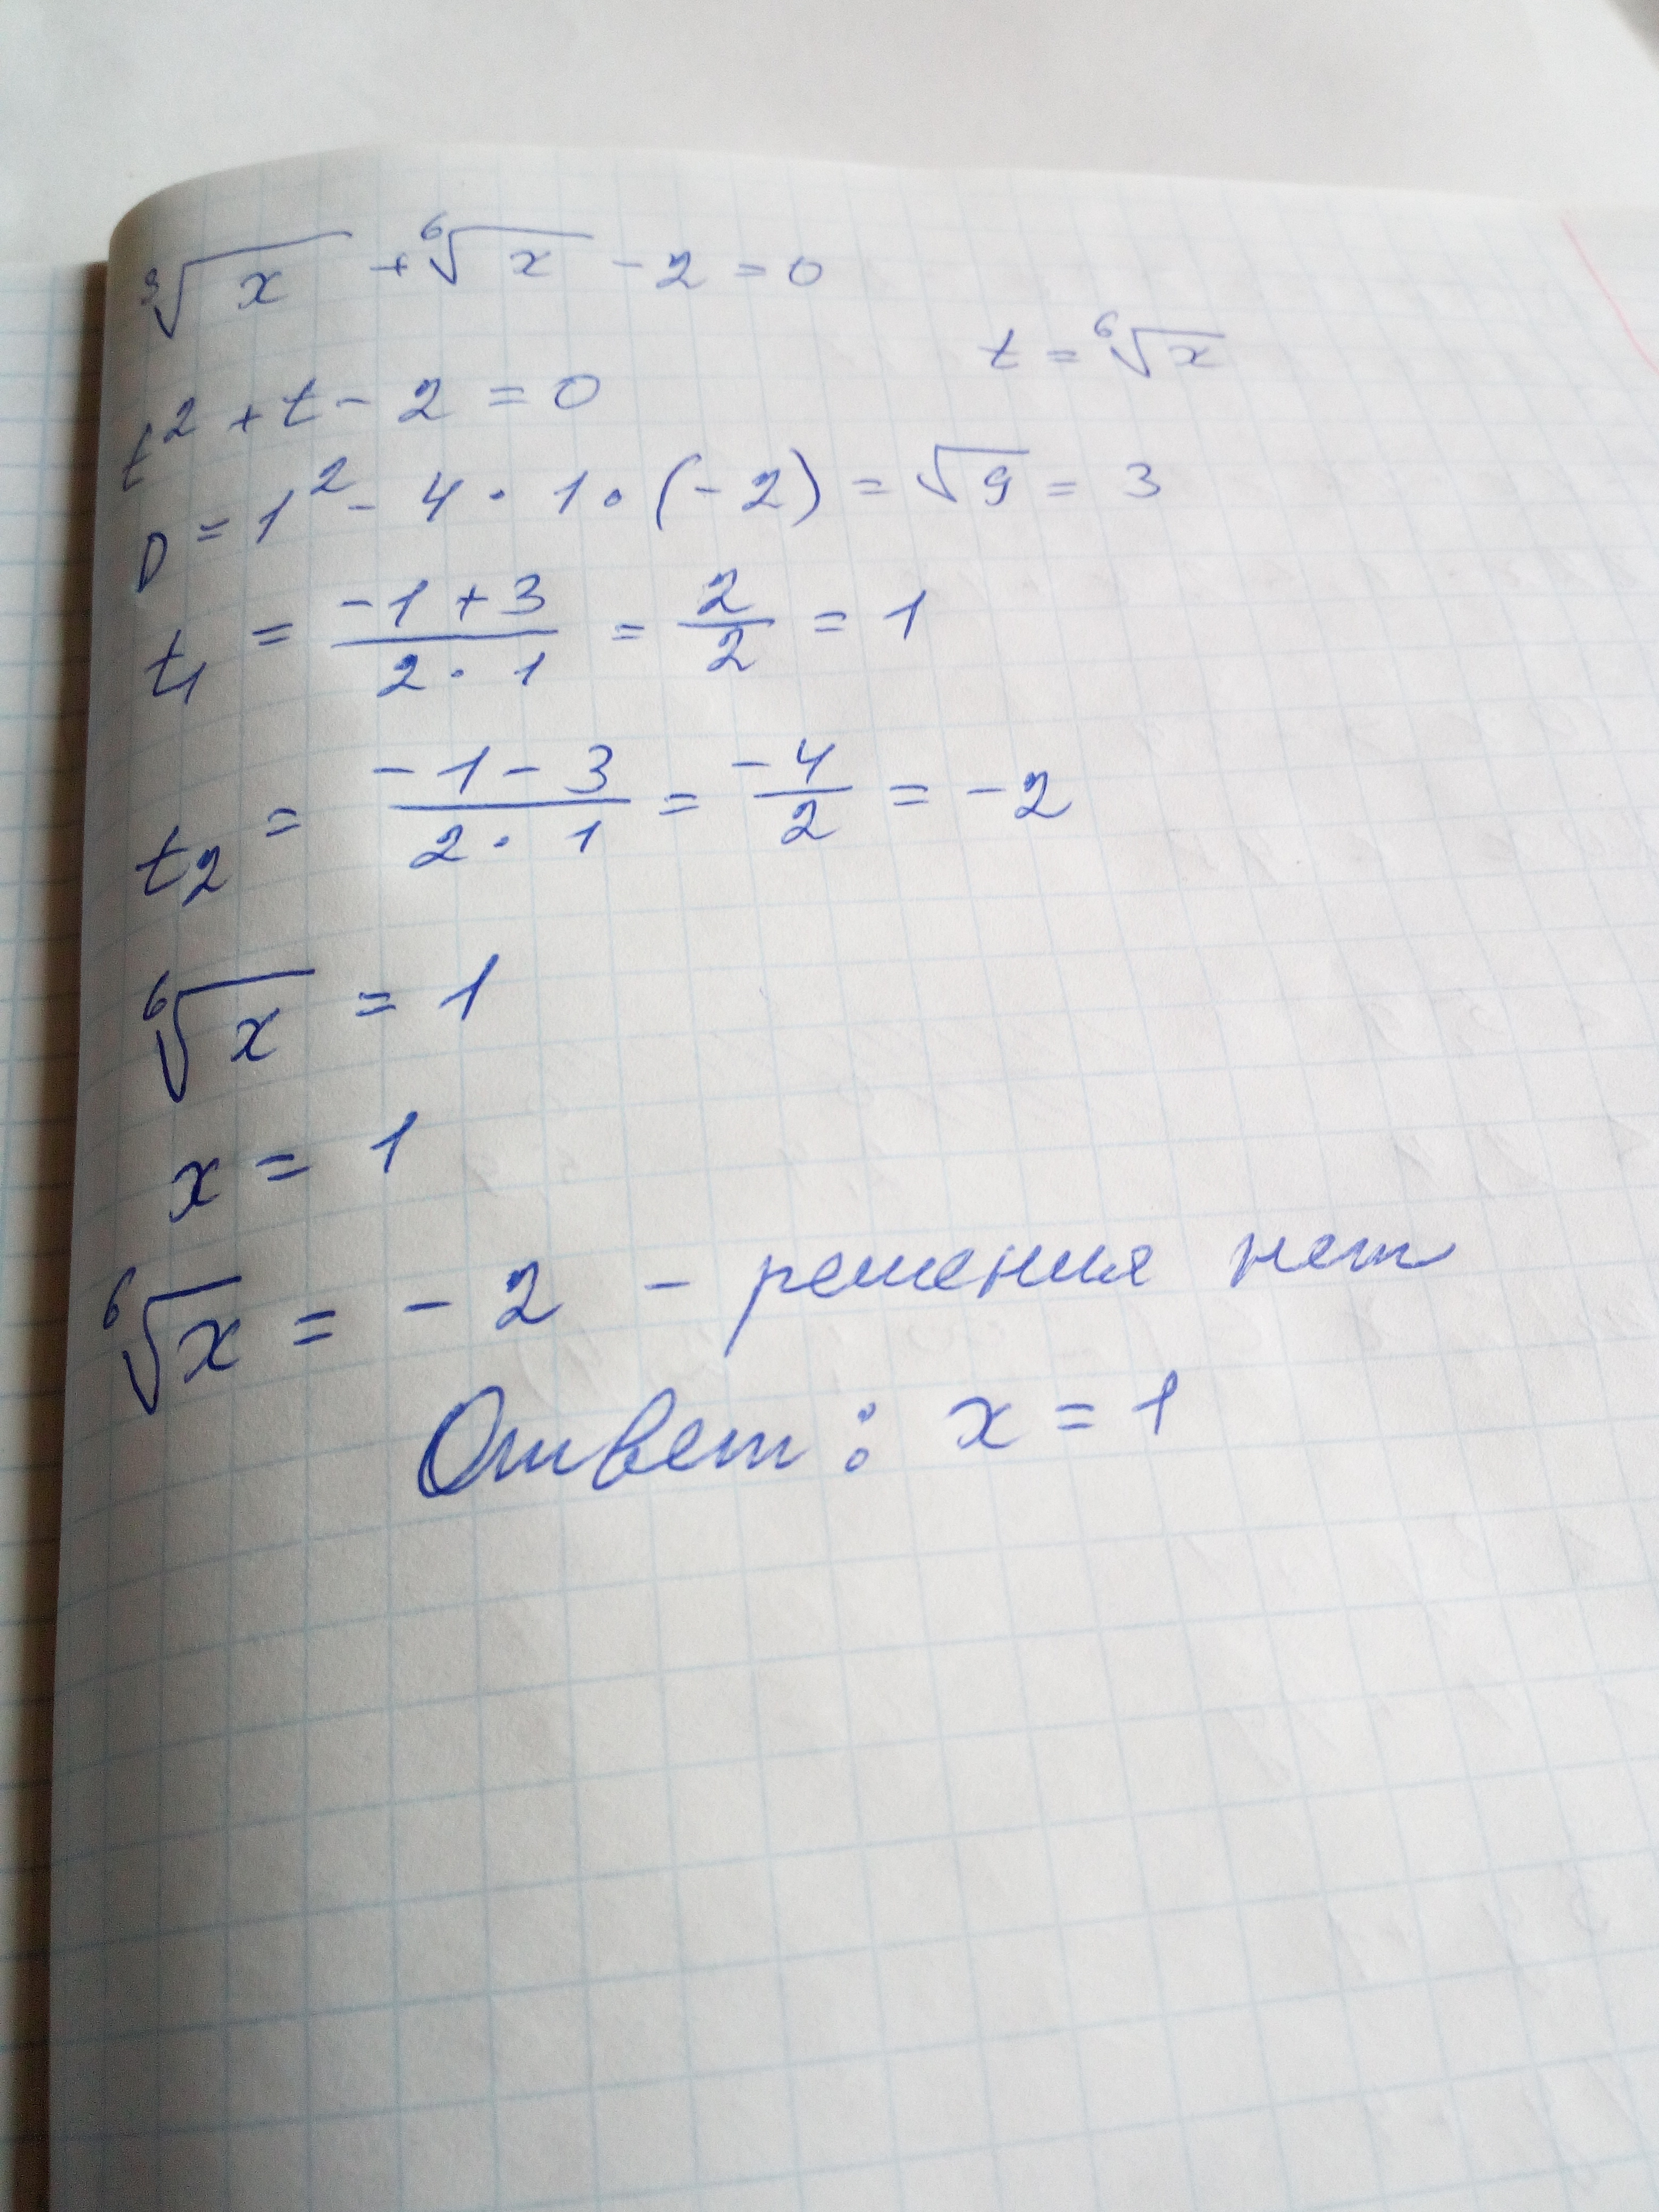 ∛x + ⁶√x - 2 = 0
t = ⁶√x
t² + t - 2 = 0
D = 1² - 4 · 1 · (-2) = √9 = 3
t₁ = (-1 + 3)/(2 · 1) = 2/2 = 1
t₂ = (-1 - 3)/(2 · 1) = -4/2 = -2
⁶√x = 1
x = 1
⁶√x = -2 - решения нет
Ответ: x = 1